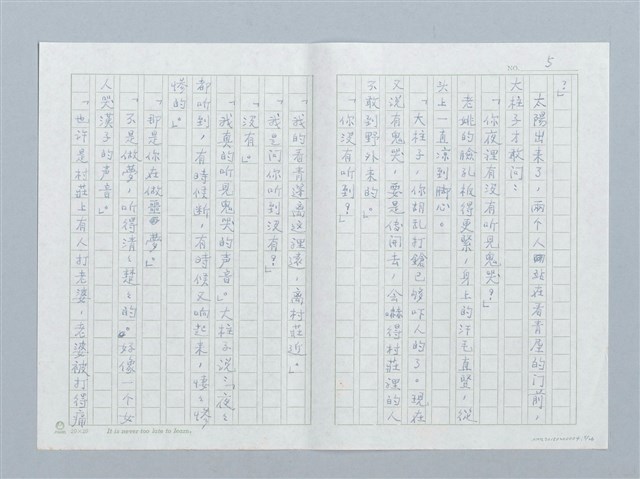 NO. 5
?」
太陽出来了，两个人站在看青屋的门前，
大柱子才敢问：
「你夜裡有没有听見鬼哭？」
老姚的臉孔板得更緊，身上的汗毛直竪，從
头上一直凉到脚心。
「大柱子，你胡乱打鎗已够吓人的了。現在
又説有鬼哭，要是传闻去，会嚇得村莊裡的人
不敢到野外来的。」
「你没有听到？」
「我的看青蓬离这裡遠，离村莊近。」
「我是问你听到没有？」
「没有。」
「我真的听見鬼哭的声音。」大柱子説：「夜夜
都听到，有時候断，有時候又响起来，悽悽惨
惨的。」
「那是你在做噩夢。」
「不是做夢，听得清清楚楚的。好像一个女
人哭漢子的声音。」
「也许是村莊上有人打老婆，老婆被打得痛
25×20
It is never too late to learn.